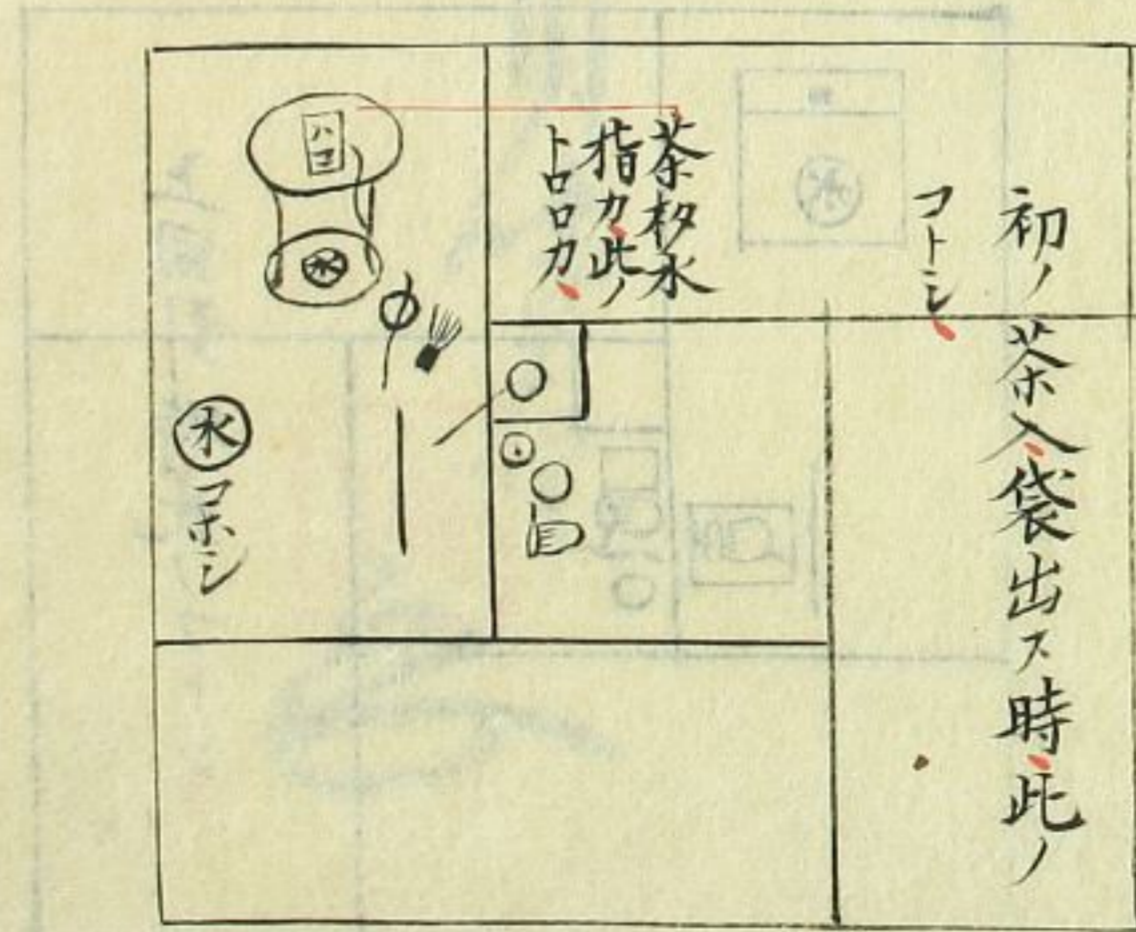 初ノ茶入袋出ス時此ノ
コトシ
茶杓水
指カ此ノ
トロロカ
ハコ
水
水コホシ